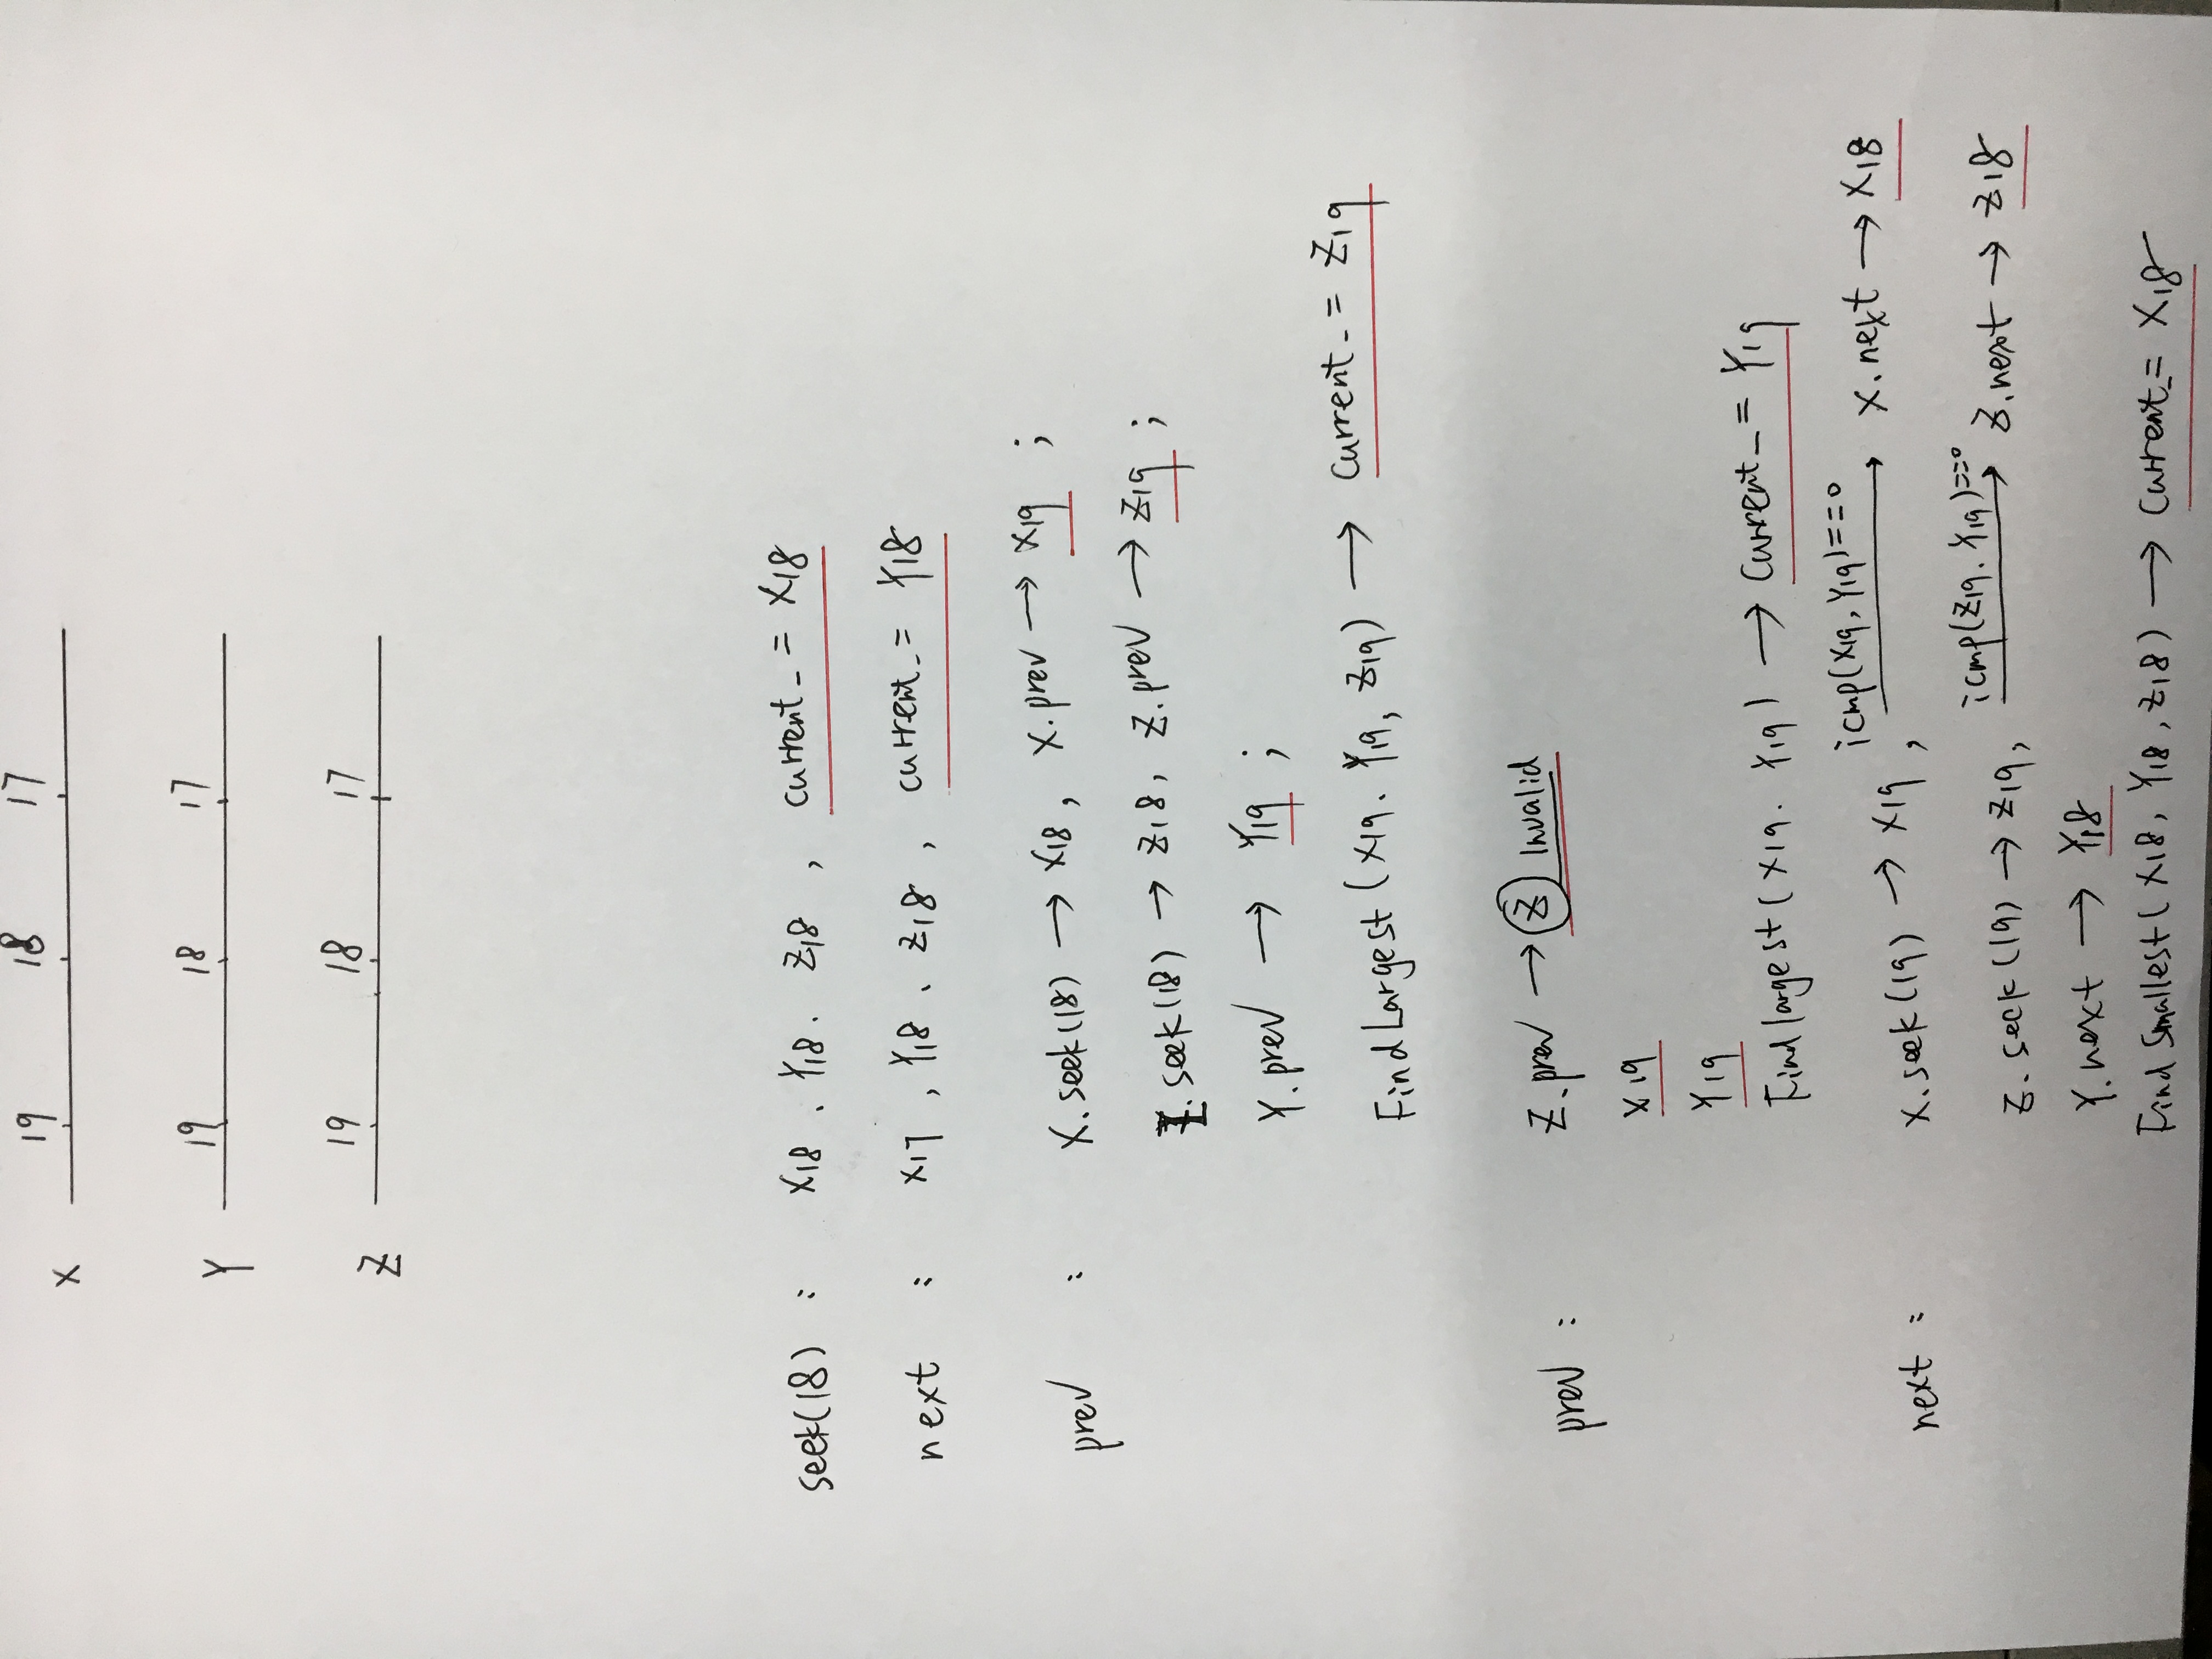 19 18 17
X
19 18 17
Y
19 18 17
Z
seek(18) : X18 . Y18 . Z18 , current_ = X18
next : X17 , Y18 . Z18 , current_ = Y18
prev : X.seek(18) → X18 , X.prev → X19 ;
.seek(18) → Z18 , Z.prev → Z19 ;
Y.prev → Y19 ;
FindLargest (X19. Y19, Z19) → current_ = Z19
prev : Z.prev → Z Invalid
X19
Y19
Findlargest ( X19. Y19 ) → current_ = Y19
icmp(X19, Y19)==0
next : X.seek(19) → X19 , → X.next → X18
icmp(Z19. Y19)==0
Z.seek(19) → Z19, → Z.next → Z18
Y.next → Y18
Find Smallest ( X18, Y18, Z18 ) → current_= X18